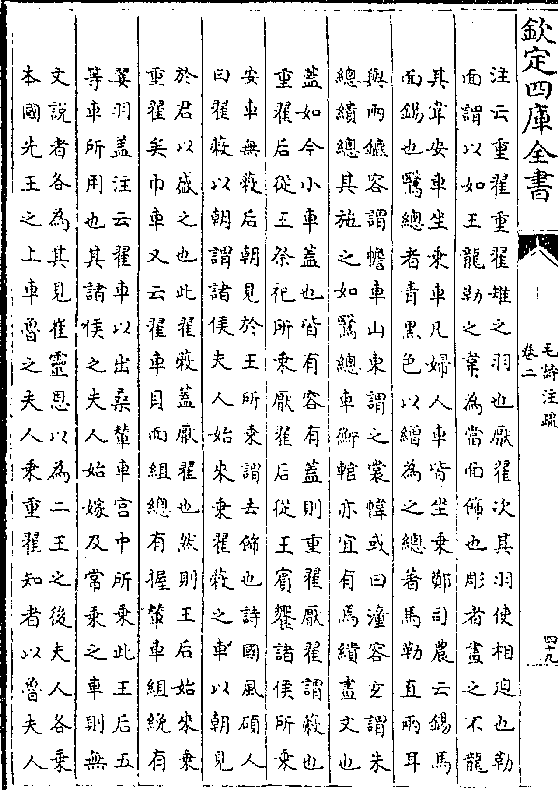 欽定四庫全書
毛詩注疏
卷二
四十九
注云重翟重翟雉之羽也厭翟次其羽使相迫也勒
面謂以如王龍勒之韋為當面飾也彫者畫之不龍
其韋安車坐乘車凡婦人車皆坐乘鄭司農云錫馬
面錫也鷖總者青黑色以繒為之總著馬勒直兩耳
與兩鑣容謂幨車山東謂之裳幃或曰潼容玄謂朱
總繢總其施之如鷖總車衡輨亦宜有焉繢畫文也
蓋如今小車蓋也皆有容有蓋則重翟厭翟謂蔽也
重翟后從王祭祀所乘厭翟后從王賓饗諸侯所乘
安車無蔽后朝見於王所乘謂去飾也詩國風碩人
曰翟蔽以朝謂諸侯夫人始來乘翟蔽之車以朝見
於君以盛之也此翟蔽蓋厭翟也然則王后始來乘
重翟矣巾車又云翟車貝面組總有握輦車組綩有
翣羽蓋注云翟車以出桑輦車宮中所乘此王后五
等車所用也其諸侯之夫人始嫁及常乘之車則無
文說者各為其見崔靈恩以為二王之後夫人各乘
本國先王之上車魯之夫人乘重翟知者以魯夫人